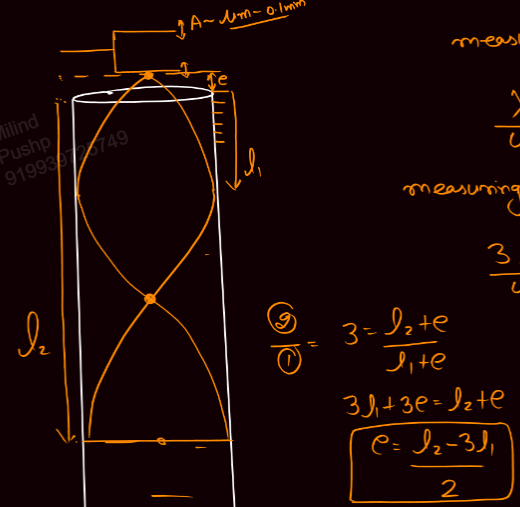 A ~ μm - 0.1mm
e
l₁
l₂
Milind
Pushp
919939725749
meas
λ
measuring
3
②/① = 3 = l₂+e/l₁+e
3l₁+3e = l₂+e
e = l₂-3l₁/2